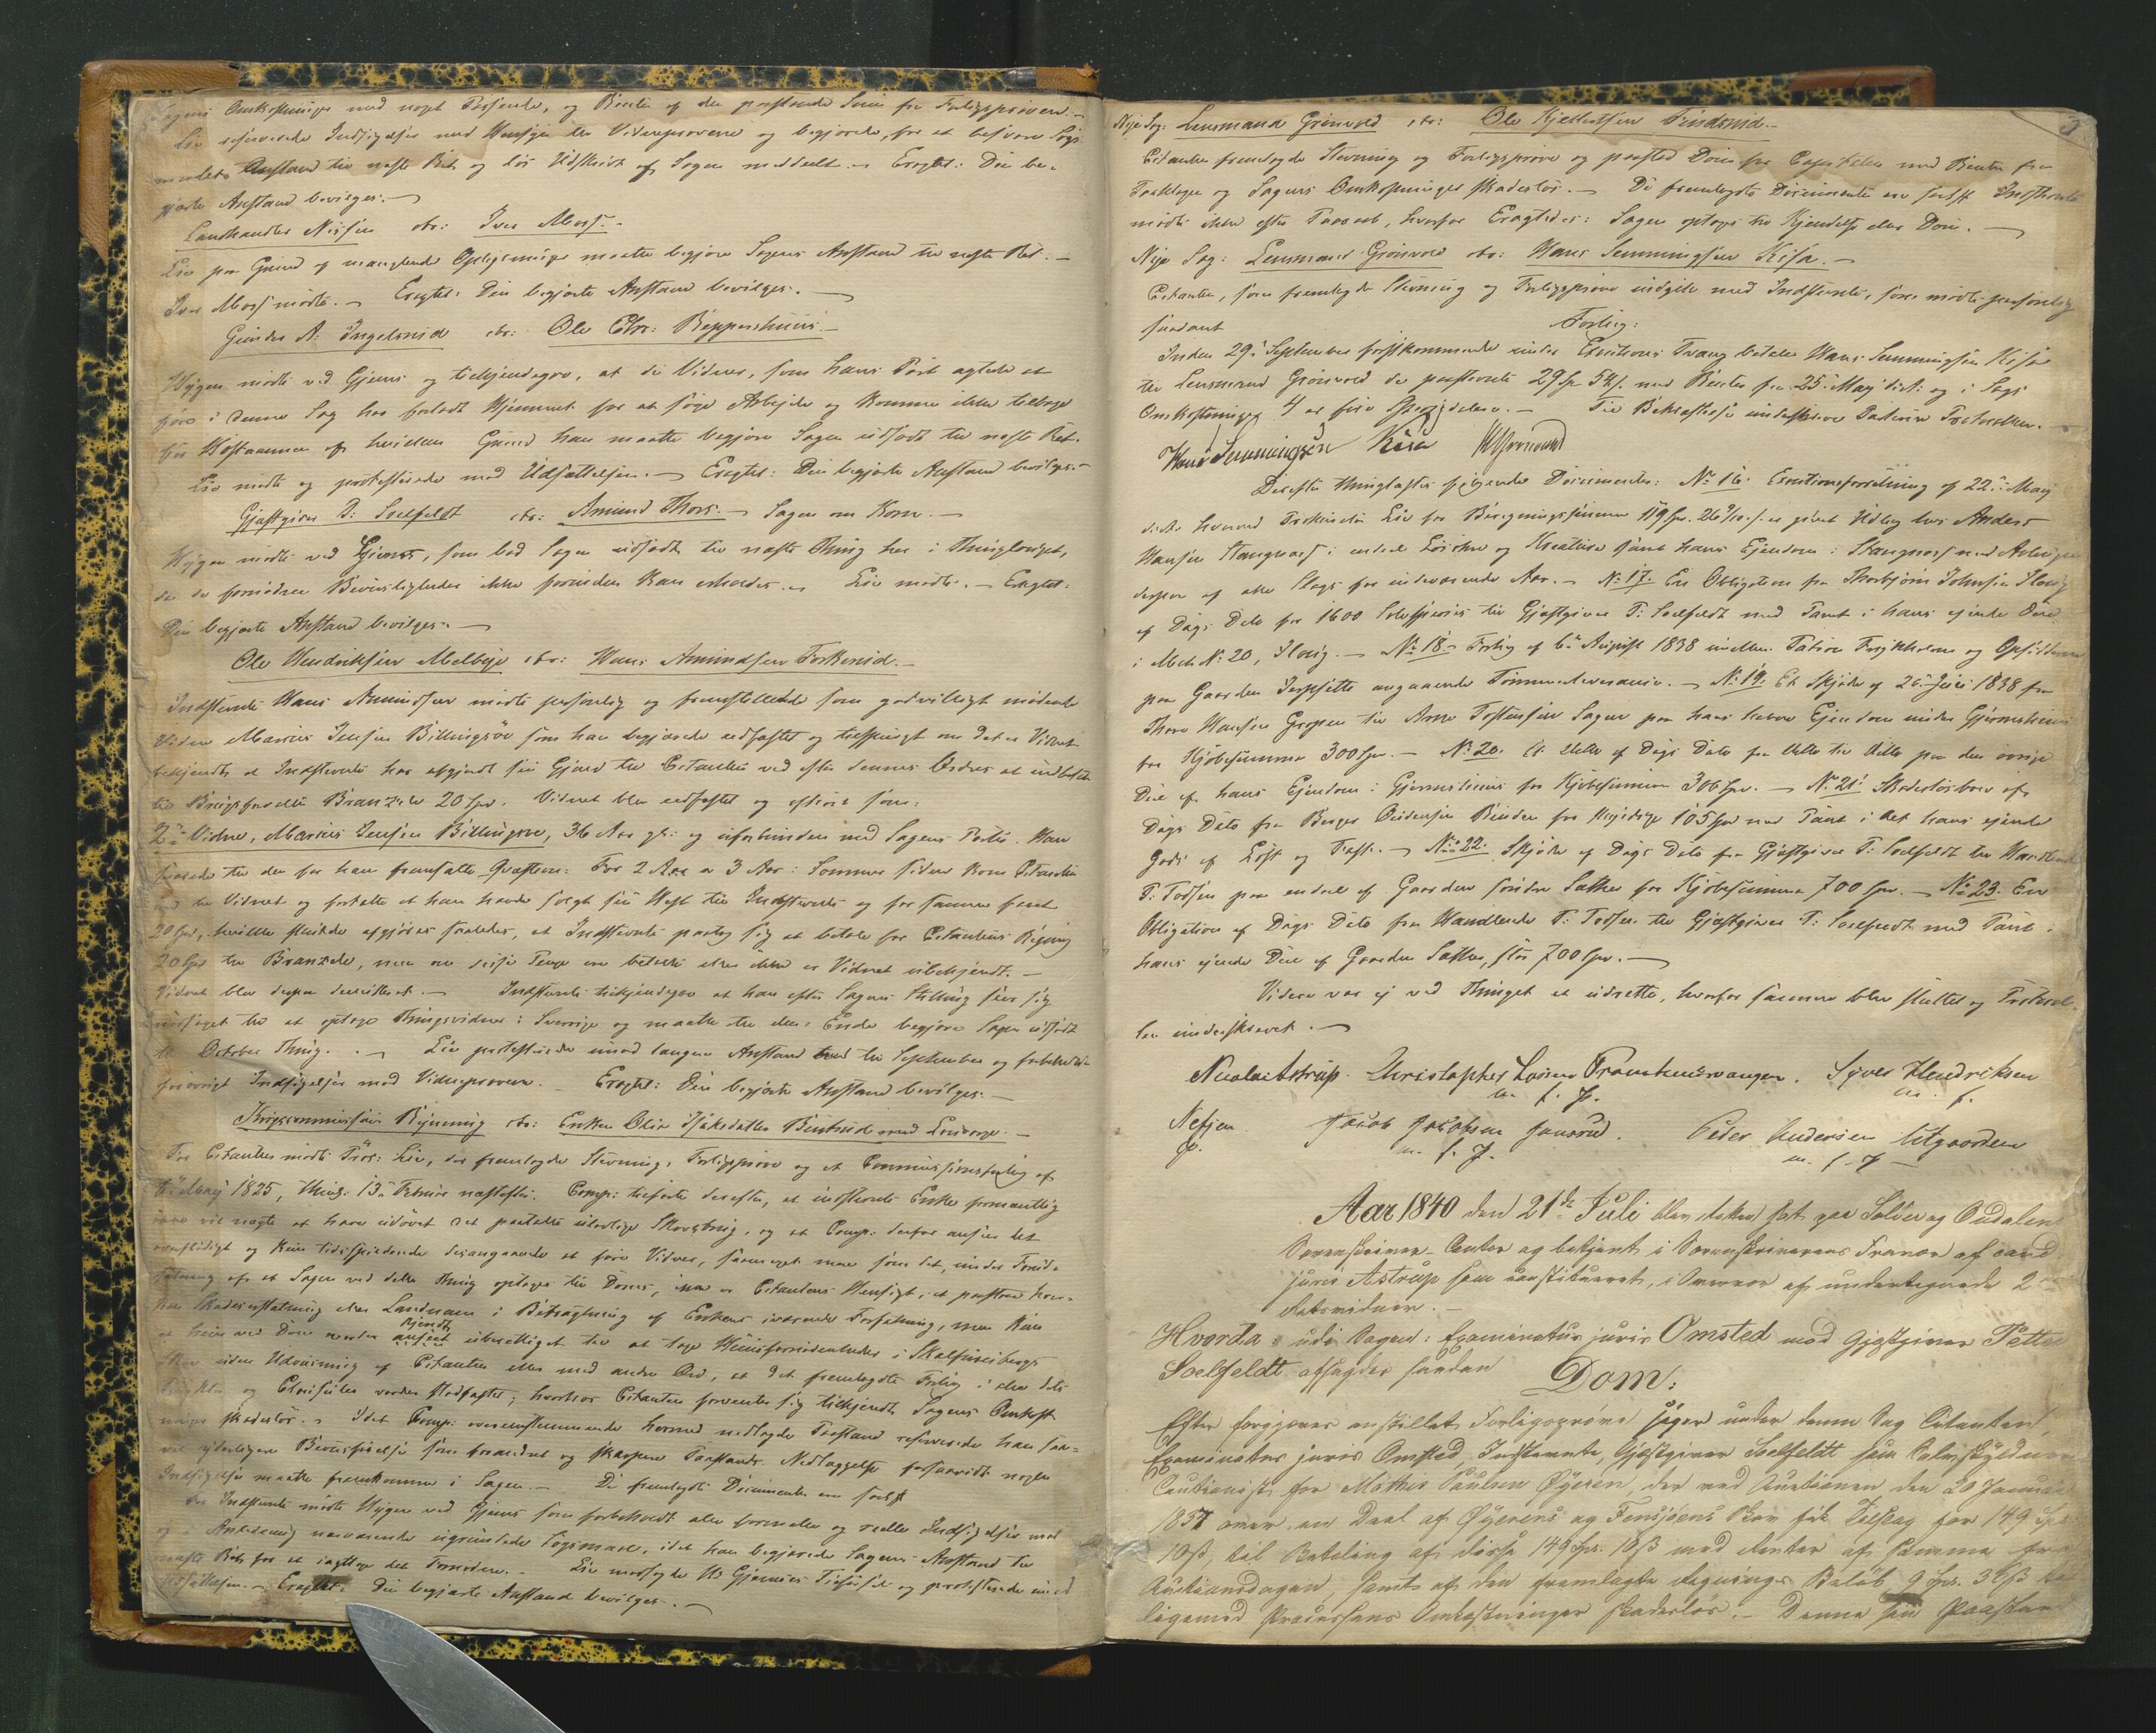 Sagens Omkostninger med noget Tilsvarende, og Renter af den paastævnte Sum fra Forligsprøven. –
Lie reserverede Indsigelser med Hensyn til Vidneprovene og begjærede, for at besvare Søgs
maalet Anstand til næste Ret og bør Udskrift af Sagen meddelt. Eragtet: Den be-
gjærte Anstand bevilges. –
Landhandler Nissen ctr: Iver Moss. –
Lie paa Grund af manglende Oplysninger maatte begjære Sagens Anstand til næste Ret. –
Iver Moss mødte. – Eragtet: Den begjærte Anstand bevilges. –
Gunder A: Ingelsrud ctr: Ole Chr: Beppershuus –
Nygen mødte ved Gjems og tilkjendegav, at de Vidner, som hans Part agtede at
føre i denne Sag har forladt Hjemmet for at søge Arbejde og komme ikke tilbage
før Høstaannen af hvilken Grund han maatte begjære Sagen udsadt til næste Ret.
Lie mødte og protesterede mod Udsættelsen. – Eragtet: Den begjærte Anstand bevilges. –
Gjæstgiver P: Soelfeldt ctr: Amund Thors. – Sagen om Korn. –
Nygen mødte ved Gjems, som bad Sagen udsadt til næste Thing her i Thinglauget,
da de fornødne Beviisligheder ikke forinden kan erholdes. – Lie mødte. – Eragtet:
Den begjærte Anstand bevilges. –
Ole Hendriksen Melbye ctr: Hans Amundsen Forkerud. –
Indstevnte Hans Amundsen mødte personlig og fremstillede som godvilligt mødende
Vidne Marius Jensen Billingsøe som han begjærede eedfæstet og tilspurgt om det er Vidnet
bekjendt at Indstevnte har afgjordt sin Gjæld til Citanten ved efter dennes Ordre at indbetale
til Brugsforvalter Branzele 20 Spd. Vidnet blev eedfæstet og afhørt som:
2det Vidne, Marius Jensen Billingsøe, 36 Aar gl: og uforbunden med Sagens Parter. Han
svarede til den for ham fremsatte Qvæstion: For 2 Aar a 3 Aar: Sommer siden kom Citanten
ind til Vidnet og fortalte at han havde solgt sin Hest til Indstevnte og for samme faaet
20 Spd, hvilke skulde afgjøres saaledes, at Indstevnte paatog sig at betale for Citantens Regning
20 Spd til Branzele, men om disse Penge ere betalte eller ikke er Vidnet ubekjendt. –
Vidnet blev derpaa demitteret. – Indstevnte tilkjendegav at han efter Sagens Stilling saae sig
nødsaget til at optage Thingsvidne i Sverrige og maatte til den Ende begjære Sagen udsadt
til October Thing. – Lie protesterede imod længere Anstand end til September og forbeholdt
forøvrigt Indsigelser mod Vidneproven. – Eragtet: Den begjærte Anstand bevilges. –
Krigscommissair Bynning ctr: Enken Olia Isaksdatter Bentrud med Laugværge. –
For Citanten mødte Proc: Lie, der fremlagde Stevning, Forligsprøve og et Commissionsforlig af
1825, thingl: 13de Februar næstefter. Comp: tilførte derefter, at indstevnte Enke formentlig
ikke vil nægte at have udøvet det paatalte ulovlige Skovbrug, og at Comp: derfor ansees det
overflødigt og kun tidsspildende desangaaende at føre Vidner, saameget mere som det, under Forud-
sætning af at Sagen ved dette Thing optages til Doms, ikke er Citantens Hensigt, at paastaae hver-
ken Skadeserstatning eller Landnam i Betragtning af Enkens ioværende Forfatning, men kun
at hun ved Dom vorder kjendt anseet uberettiget til at tage Huusfornødenheder i Skulhuusbergs
Skov uden Udviisning af Citanten eller med andre Ord, at det fremlagte Forlig i alle dets
Puncter og Clausuler vorder stadfæstet; hvorhos Citanten forventer sig tilkjendt Sagens Omkost-
ninger skadesløs. – Idet Comp: overensstemmende hermed nedlagde Paastand reserverede han saa-
vel yderligere Beviisførelse som forandret og skarpere Paastands Nedlæggelse forsaavidt nogen
Indsigelse maatte fremkomme i Sagen. – De fremlagte Documenter ere saalydende
For Indstevnte mødte Nygen ved Gjems som forbeholdt alle formelle og reelle Indsigelser mod
og i Anledning nærværende ugrundede Søgsmaal, idet han begjærede Sagens Anstand til
næste Ret for at iagttage det Fornødne. – Lie modsagde Hr Gjemses Tilførsel og protesterede imod
Udsættelsen. – Eragtet: Den begjærte Anstand bevilges. –
3
Nye Sag: Lensmand Grønvold ctr: Ole Kjeldsen Findsrud. –
Citanten fremlagde Stevning og Forligsprøve og paastod Dom for Capitalen med Renter fra
Paaklagen og Sagens Omkostninger skadesløs. – De fremlagte Documenter ere saalydende Indstevnte
mødte ikke efter Paaraab, hvorfor Eragtedes: Sagen optages til Kjendelse eller Dom. –
Nye Sag: Lensmand Grønvold ctr: Hans Semmingsen Kisa. –
Citanten, som fremlagde Stevning og Forligsprøve indgik med Indstevnte, som mødte personlig
saadant Forlig:
Inden 29de September førstkommende under Executions Tvang betaler Hans Semmingsen Kisa
til Lensmand Grønvold de paastevnte 29 Spd 54 s. med Renter fra 25de May d.A. og i Sags
Omkostninger 4 er fire Speciedaler. – Til Bekræftelse underskrive Parterne Protocollen. –
Hans Semmingsen Kisa MGrønvold
Derefter thinglæstes følgende Documenter: No 16. Executionsforretning af 22de May
sidst hvorved Prokurator Lie for Beregningssummen 119 Spd. 26 s. er givet Udlæg hos Anders
Hansen Stangnæss i endeel Løsøre og Kreature samt hans Ejendom i Stangnæss med Avlingen
derpaa af alle Slags for indeværende Aar. – No 17. En Obligation fra Thorbjørn Johnsen Haug
af Dags Dato for 1600 Sølvspecies til Gjæstgiver P: Soelfeldt med Pant i hans ejende Deel
i Matr. No. 20, Haug. – No 18. Forlig af 6te August 1838 imellem Tatian Frysjeholm og Opsidderne
paa Gaarden Jerpsætte angaaende Tømmerleverance. – No 19. Et Skjøde af 26de Juni 1838 fra
Thore Hansen Grasmo til Arne Torstensen Sagen paa hans halve Ejendom under Gjermshuus
for Kjøbesummen 300 Spd. – No 20. Et dette af Dags Dato fra dette til dette paa den øvrige
Deel af hans Ejendom i Gjermshuus for Kjøbesummen 300 Spd. – No 21. Skadesløsbrev af
Dags Dato fra Berger Endersen Rinden for skyldige 105 Spd med Pant i det hans ejende
Gods af Løst og Fast. – No 22. Skjøde af Dags Dato fra Gjæstgiver P: Soelfeldt til Handlende
T: Torsen paa endeel af Gaarden søndre Sæther for Kjøbesummen 700 Spd. – No 23. En
Obligation af Dags Dato fra Handlende T: Torsen til Gjæstgiver P: Soelfeldt med Pant i
hans ejende Deel af Gaarden Sæther, stor 700 Spd. –
Videre var ej ved Thinget at udrette, hvorfor samme blev sluttet og Protocol-
len underskrevet. –
Nicolai Astrup. Christopher Larsen Framhuusvangen. Syver Hendriksen
m. f. P. m. f.
Nefjen Jacob Jacobsen Jansrud. Peder Andersen Utgaarden
P. m. f. P. m. f. P
Aar 1840 den 21de Juli blev Retten sat paa Solør og Oudalens
Sorenskriver-Contor og betjent i Sorenskriverens Fravær af cand
juris Astrup som constitueret, i Overvær af undertegnede 2de
Retsvidner. –
Hvorda udi Sagen: Examinatus juris Omsted mod Gjestgiver Petter
Soelfeldt afsagdes saadan Dom:
Efter forgjæves anstillet Forligsprøve søger under denne Sag Citanten,
Examinatus juris Omsted, Indstevnte, Gjæstgiver Soelfeldt som Selvskyldner
Cautionist for Mathis Paulsen Øyeren, der ved Auctionen den 20 Januar
1837 over en Deel af Øyerens og Fensjøens Skov fik Tilslag for 149 Spd.
10 ß, til Betaling af disse 149 Spd. 10 ß med Renter af samme fra
Auctionsdagen, samt af den fremlagte Regnings Beløb 9 Spd. 36 ß til
ligemed Processens Omkostninger skadesløs. – Denne sin Paastand